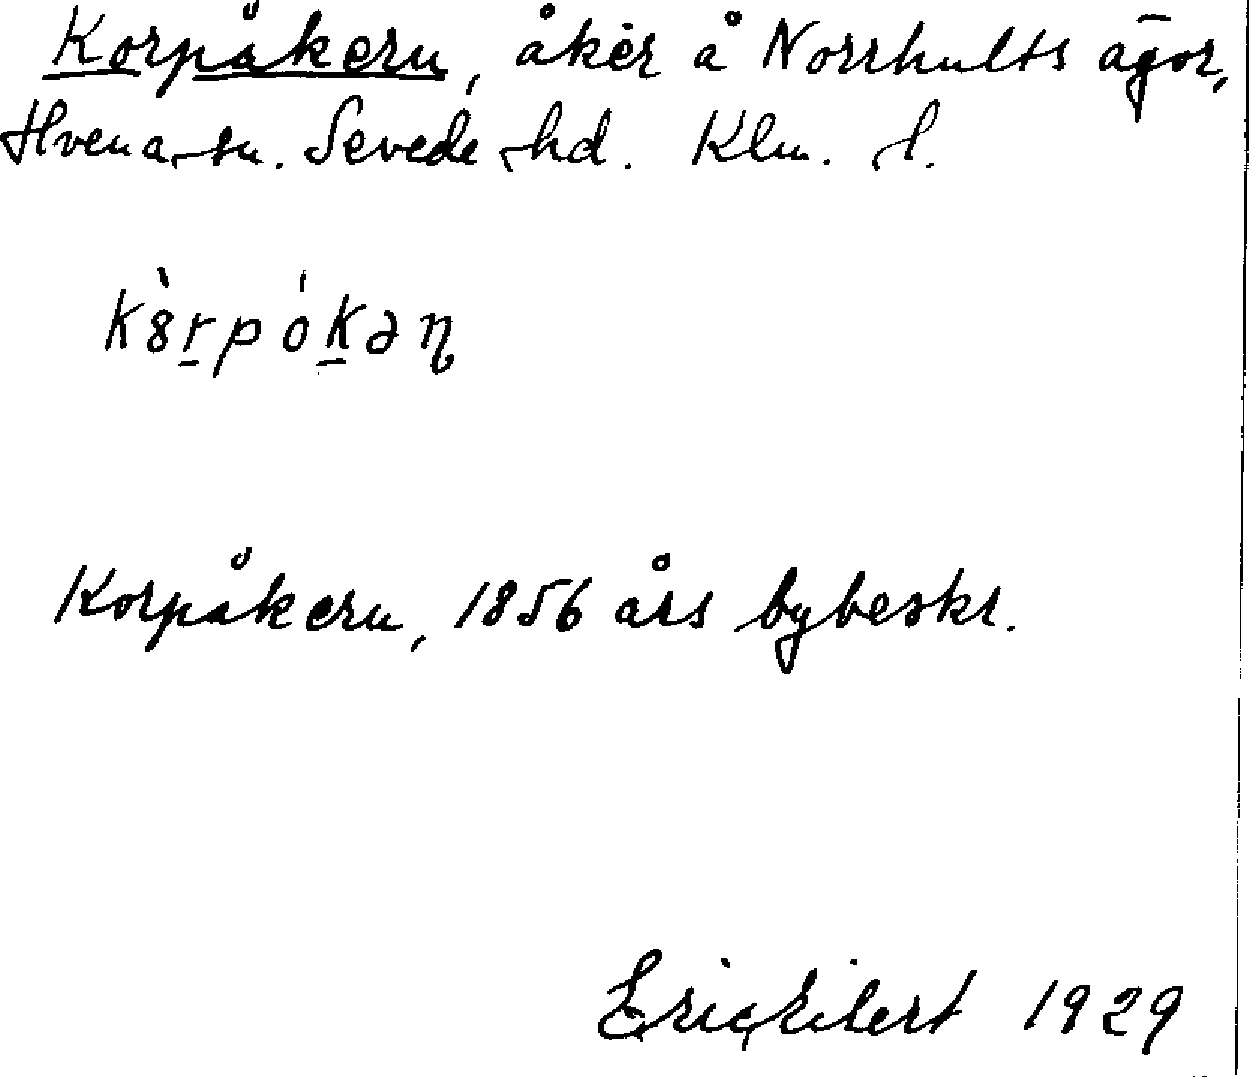 Korpåkern, åker å Norrhults ägor,
Hvena sn. Sevede hd. Klm. l.
k8̀r̠pók̠əη
Korpåkern, 1856 års bybeskr.
Eric Eilert 1929